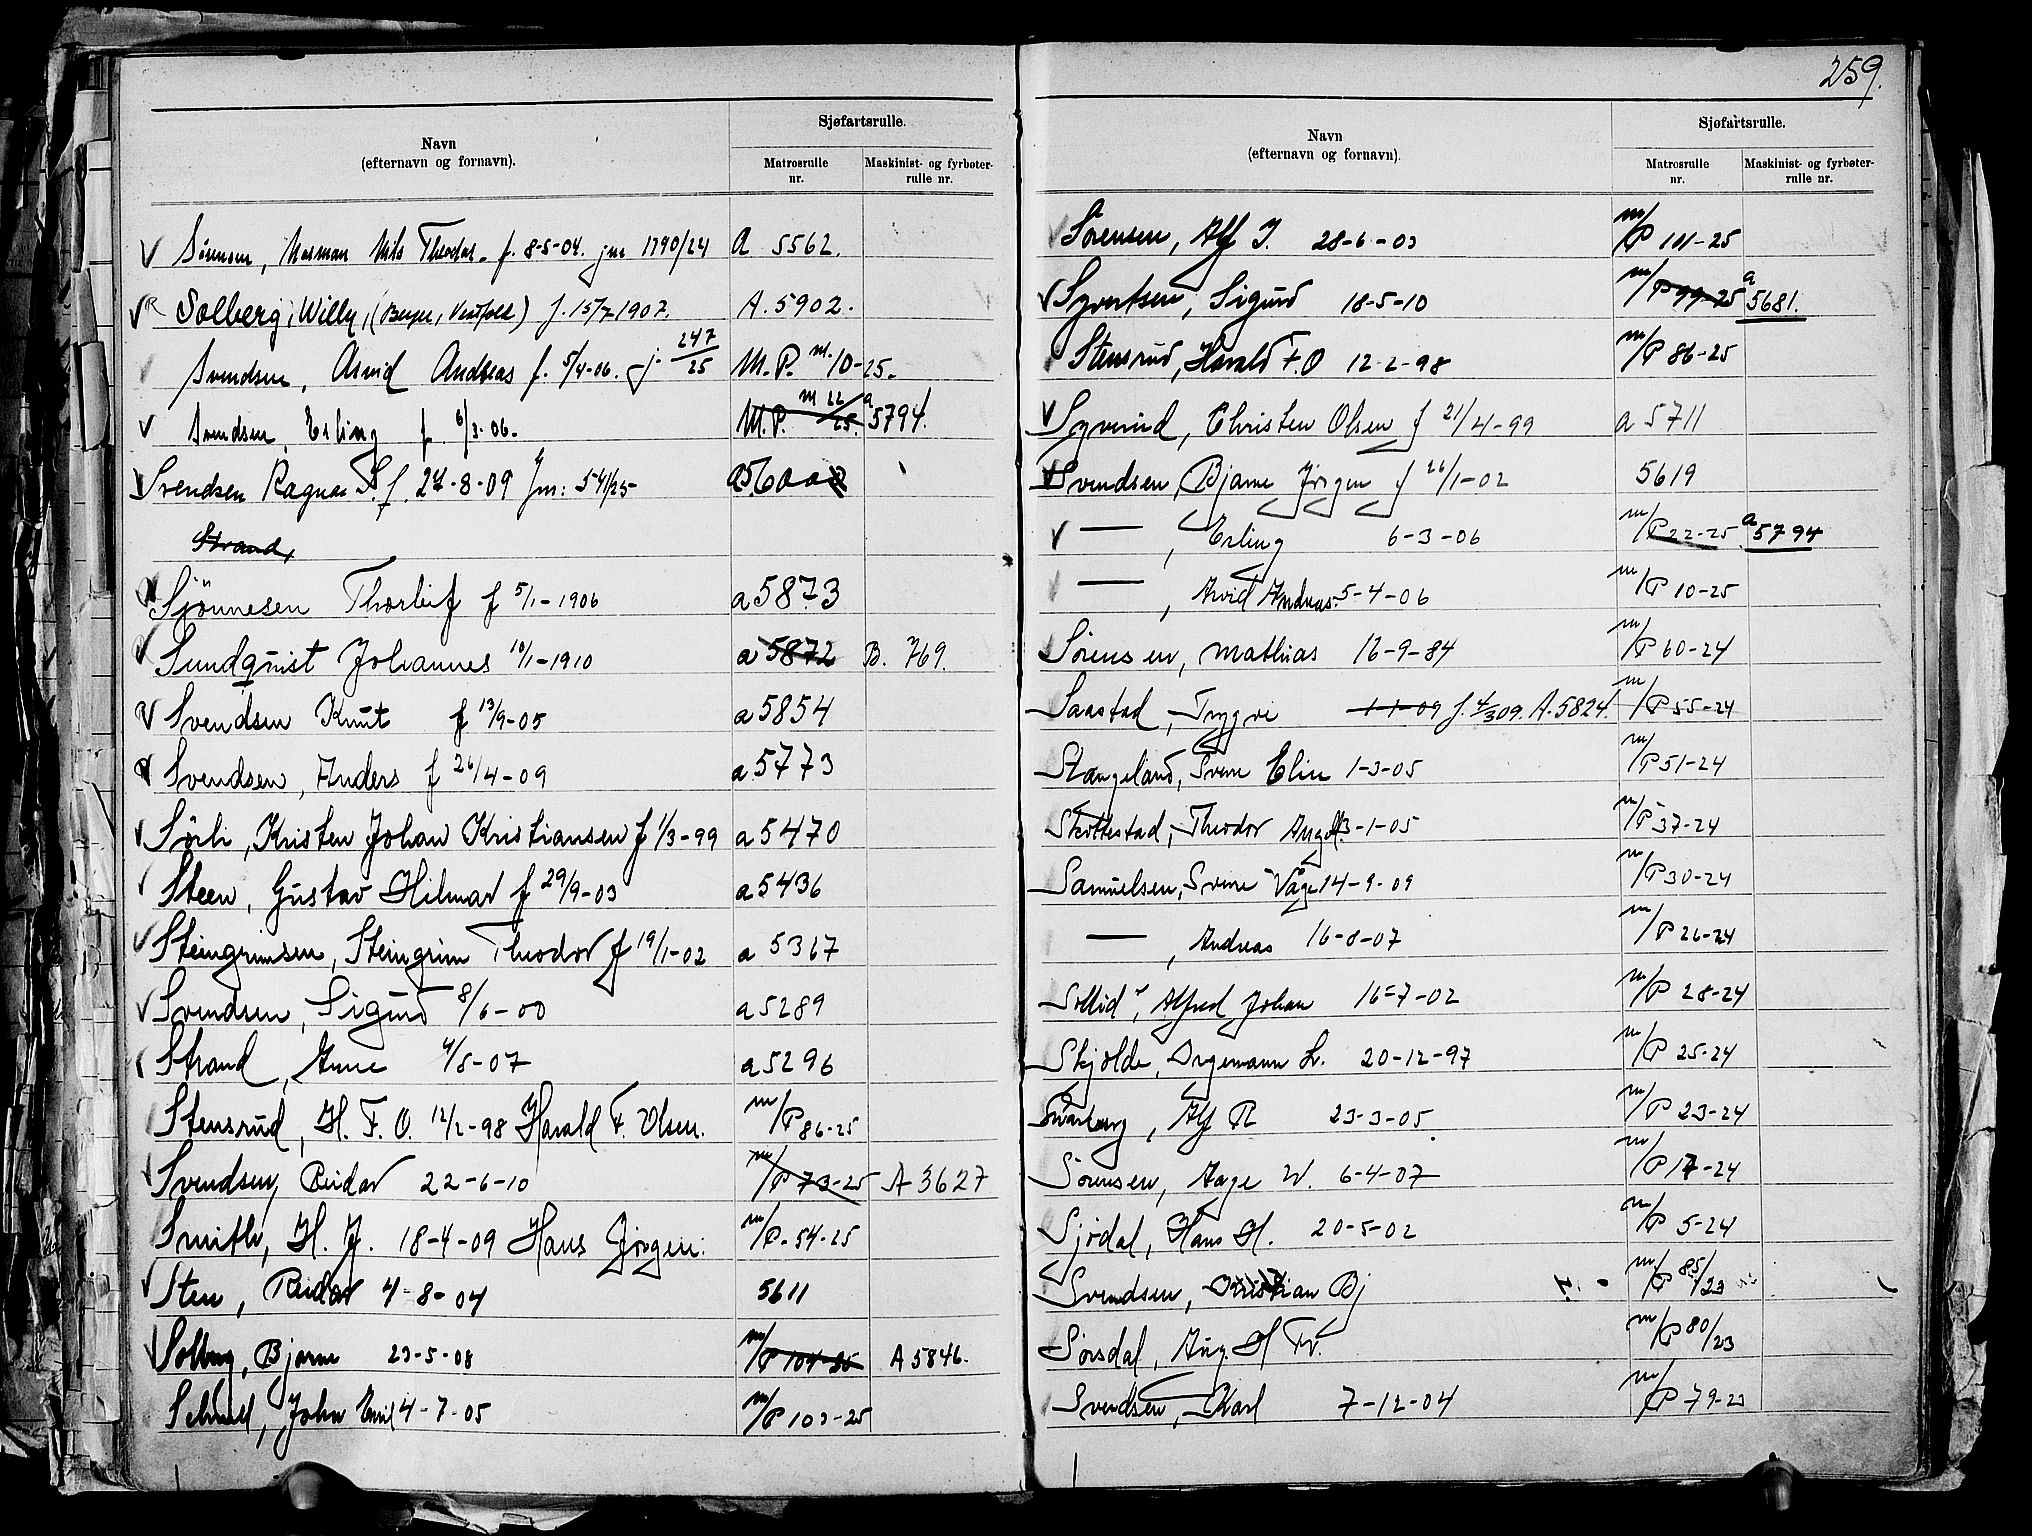 259.
Navn
(efternavn og fornavn).
Sjøfartsrulle.
Matrosrulle nr.
Maskinist- og fyrbøter-rulle nr.
Sörensen, Norman Nils Theodor. f. 8-5-04. jnr 1790/24 A 5562.
Solberg, Willy, f. 15/7 1907. A. 5902.
Svendsen, Arvid Andreas f. 5/4-06. j. 247/25 M. P. m. 10-25.
Svendsen, Erling f. 6/3-06. M. P. m 22/25. a 5794.
Svendsen Ragnar S. f. 27-8-09 Jnr: 541/25 a 5600
Strand,
Sjönnesen Thorleif f 5/1-1906 a 5873
Sundqvist Johannes 10/1-1910 a 5872 B. 769.
Svendsen Knut f 13/9-05 a 5854
Svendsen, Anders f 26/4-09 a 5773
Sörli, Kristen Johan Kristiansen f 1/3-99 a 5470
Steen, Gustav Hilmar f 29/9-03 a 5436
Steingrimsen, Steingrim Theodor f 19/1-02 a 5367
Svendsen, Sigurd 8/6-00 a 5289
Strand, Arne 4/5-07 a 5296
Stensrud, H. F. O. 12/2-98 Harald F. Olsen. m/P 86-25
Svendsen, Reidar 22-6-10 m/P 73-25 A 3627
Smith, H. J. 18-4-09 Hans Jörgen. m/P. 54-25
Sten, Reidar 4-8-04 5611
Solberg, Bjarne 23-5-08 m/P 104-25 A 5846.
John Emil 4-7-05 m/P 103-25
Navn
(efternavn og fornavn).
Sjøfartsrulle.
Matrosrulle nr.
Maskinist- og fyrbøter-rulle nr.
Sörensen, Alf J. 28-6-03 m/P 101-25
Syvertsen, Sigurd 18-5-10 m/P 99-25 a 5681.
Stensrud, Harald F. O 12-2-98 m/P 86-25
Syverud, Christen Olsen f 21/4-99 a 5711
Svendsen, Bjarne Jörgen f 26/1-02 5619
—, Erling 6-3-06 m/P 22-25 a 5794
—, Arvid Andreas. 5-4-06 m/P 10-25
Sörensen, Mathias 16-9-84 m/P 60-24
Saastad, Trygve 1-1-09 f. 4/3 09. A. 5824. m/P 55-24
Stangeland, Sverre Elin 1-3-05 m/P 51-24
Skottestad, Theodor Angel. 3-1-05 m/P 37-24
Samuelsen, Sverre Våge 14-9-09 m/P 30-24
—, Andreas 16-8-07 m/P 26-24
Sollid, Alfred Johan 16-7-02 m/P 28-24
Skjolde, Ingemann L. 20-12-97 m/P 25-24
Svarberg, Alf R 23-3-05. m/P 23-24
Sörensen, Aage W. 6-4-07 m/P 17-24
Sjödal, Hans H. 20-5-02 m/P 5-24
Svendsen, Kristian Bj m/P 85/23
Sörsdal, Aug. H Fr. m/P 80/23
Svendsen, Karl 7-12-04 m/P 79-23